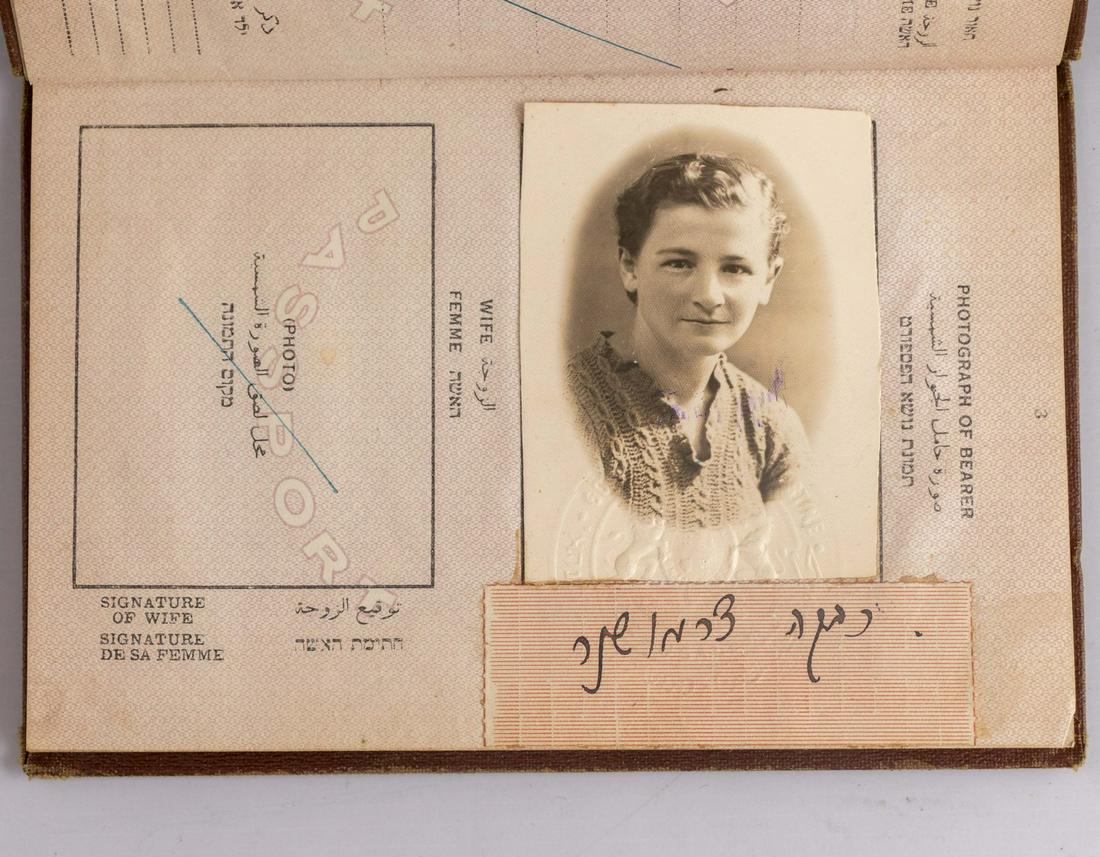 WIFE الزوجة
FEMME האשה
(PHOTO)
محل لصق الصورة الشمسية
מקום התמונה
PASSPORT
SIGNATURE
OF WIFE
SIGNATURE
DE SA FEMME
توقيع الزوجة
חתימת האשה
3
PHOTOGRAPH OF BEARER
صورة حامل الجواز الشمسية
תמונת נושא הפספורט